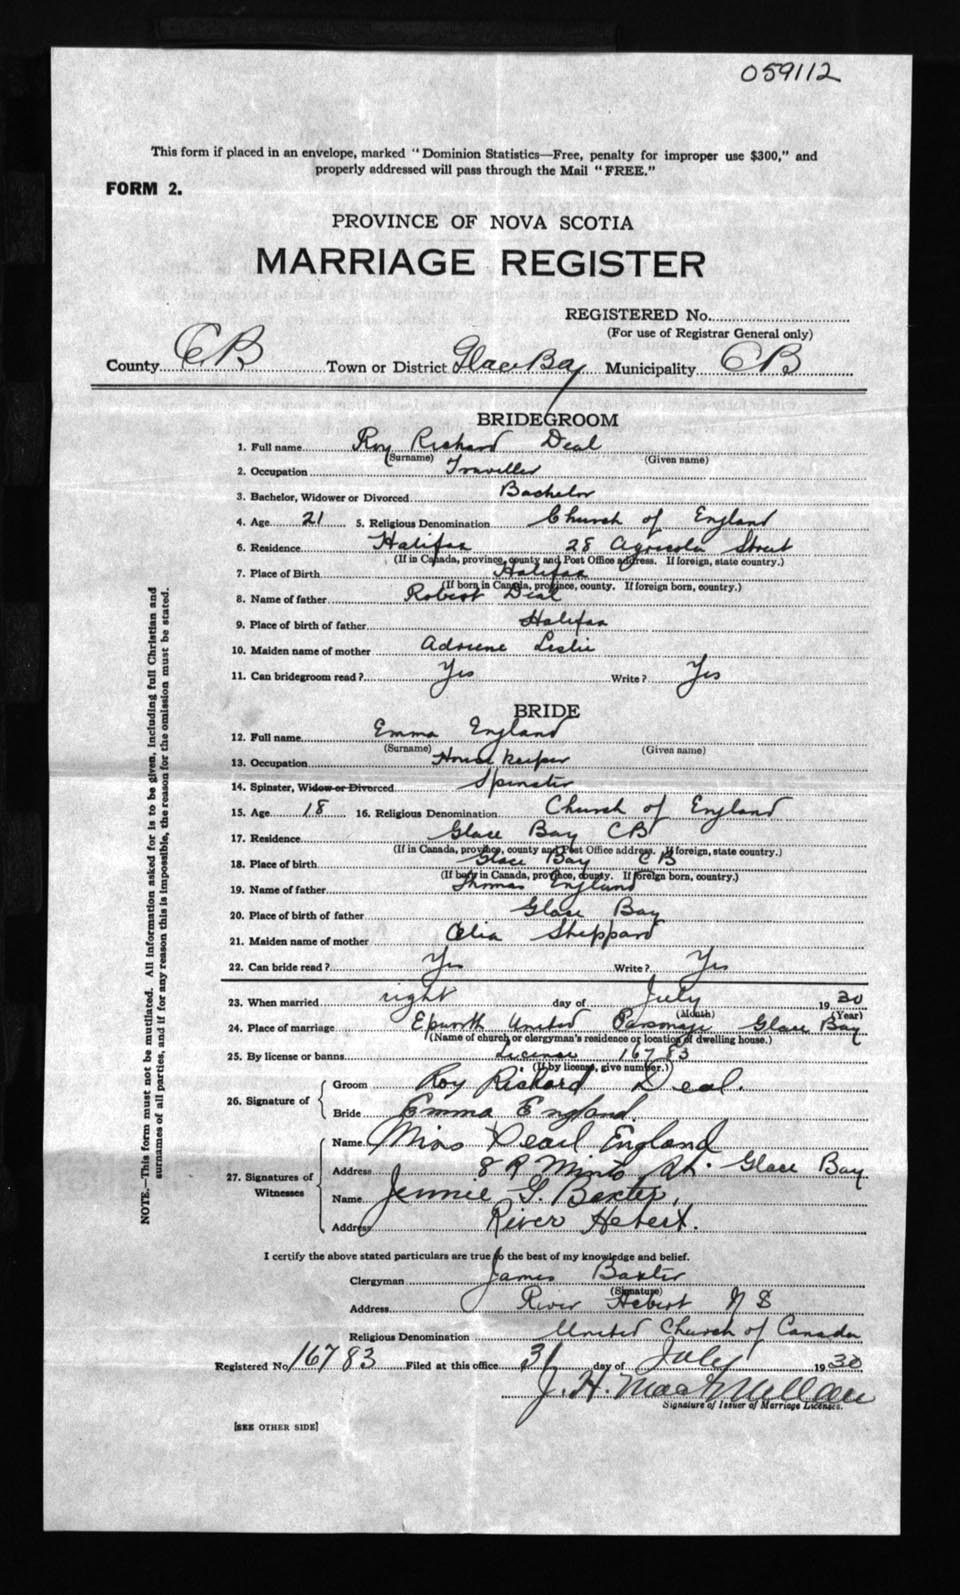 059112
This form if placed in an envelope, marked "Dominion Statistics—Free, penalty for improper use $300," and
properly addressed will pass through the Mail "FREE."
FORM 2.
PROVINCE OF NOVA SCOTIA
MARRIAGE REGISTER
REGISTERED No.
(For use of Registrar General only)
County CB Town or District Glace Bay Municipality CB
BRIDEGROOM
1. Full name Roy Richard Deal
(Surname) (Given name)
2. Occupation Traveller
3. Bachelor, Widower or Divorced Bachelor
4. Age 21 5. Religious Denomination Church of England
6. Residence Halifax 28 Agricola Street
(If in Canada, province, county and Post Office address. If foreign, state country.)
7. Place of Birth Halifax
(If born in Canada, province, county. If foreign born, country.)
8. Name of father Robert Deal
9. Place of birth of father Halifax
10. Maiden name of mother Leslie
11. Can bridegroom read? Yes Write? Yes
BRIDE
12. Full name Emma England
(Surname) (Given name)
13. Occupation House keeper
14. Spinster, Widow or Divorced Spinster
15. Age 18 16. Religious Denomination Church of England
17. Residence Glace Bay CB
(If in Canada, province, county and Post Office address. If foreign, state country.)
18. Place of birth Glace Bay CB
(If born in Canada, province, county. If foreign born, country.)
19. Name of father Thomas England
20. Place of birth of father Glace Bay
21. Maiden name of mother Celia Sheppard
22. Can bride read? Yes Write? Yes
23. When married day of July 1930
(Month) (Year)
24. Place of marriage Epworth United Parsonage Glace Bay
(Name of church or clergyman's residence or location of dwelling house.)
25. By license or banns License 16783
(If by license, give number.)
26. Signature of Groom Roy Richard Deal.
Bride Emma England.
27. Signatures of Witnesses Name Miss Pearl England
Address 8 St. Glace Bay
Name Jennie G. Baxter,
Address River Hebert.
I certify the above stated particulars are true to the best of my knowledge and belief.
Clergyman James Baxter
(Signature)
Address River Hebert N S
Religious Denomination United Church of Canada
Registered No 16783 Filed at this office 31 day of July 1930
J. H. MacMillan
Signature of Issuer of Marriage Licenses.
[SEE OTHER SIDE]
NOTE.—This form must not be mutilated. All information asked for is to be given, including full Christian and
surnames of all parties, and if for any reason this is impossible, the reason for the omission must be stated.